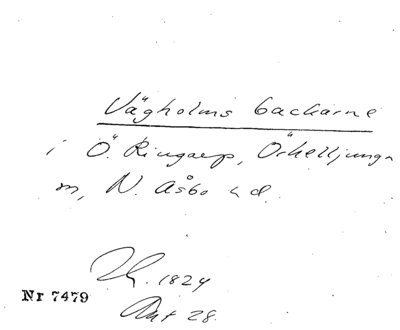 Vägholms backarne
i Ö. Ringarp, Örkelljunga
n, N. Åsbo hd.
1824
Nr 7479
Akt 28.